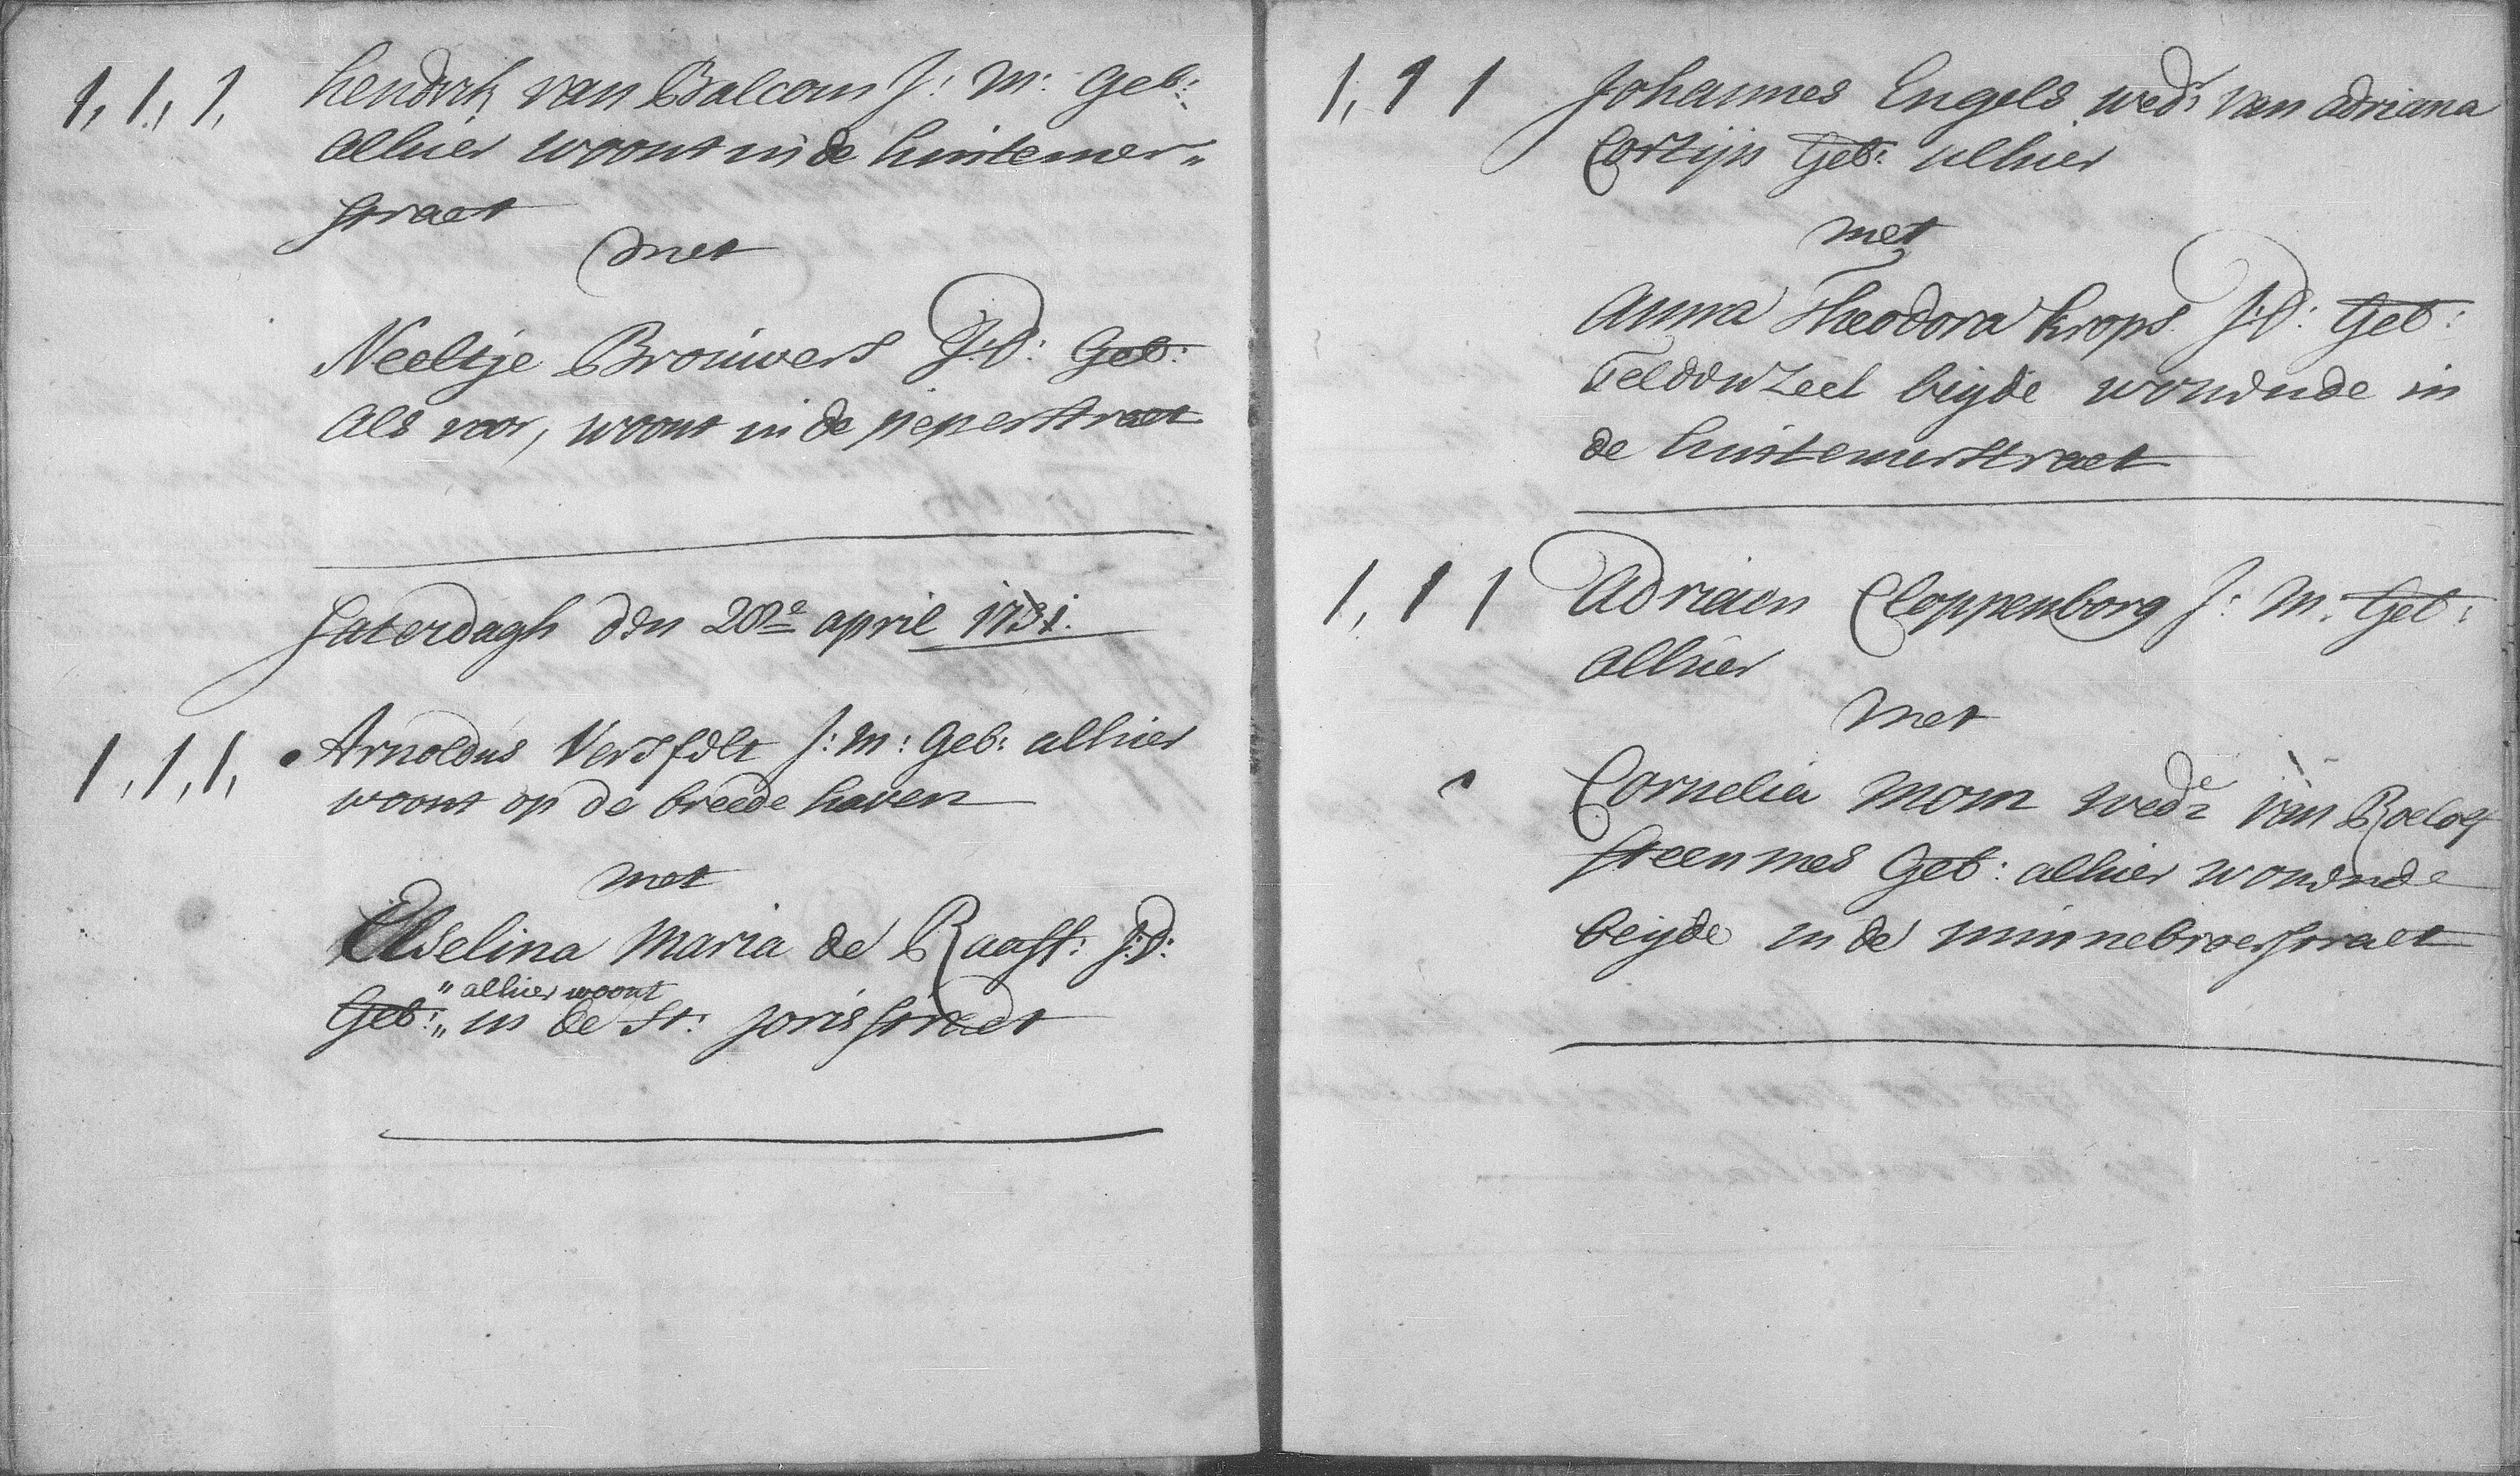 1, 1, 1, hendrik van Balcom J: M: Geb:
alhier woont in de hintemer„
straet
met
Neeltje Brouwers J:D: Geb:
als voor, woont in de peperstraet
Saterdagh den 28e april 1731.
1, 1, 1, Arnoldus Versfelt J: M: Geb: alhier
woont op de breede haven
met
Elselina Maria de Raaff: J:D:
„ alhier woont
Geb: „ in de St: Joris straet
1, 1 1 Johannes Engels wedr van adriana
Cortijn Geb: alhier
met
Anna Theodora Krops J:D: Geb:
beyde wonende in
de hintemerstraet
1, 1 1 Adriaen Cloppenborg J: M. Geb:
alhier
met
Cornelia Mom wede van Roelof
steenmes Geb: alhier wonende
beyde in de minnebroerstraet